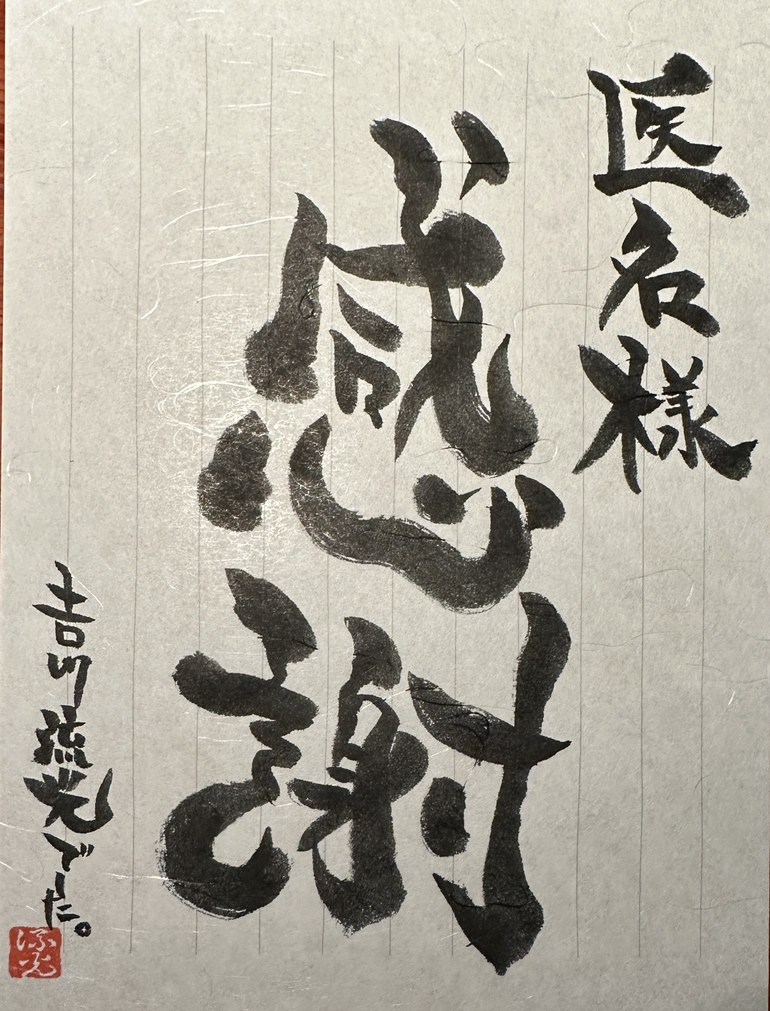 医名様
感謝
吉川流光でした。